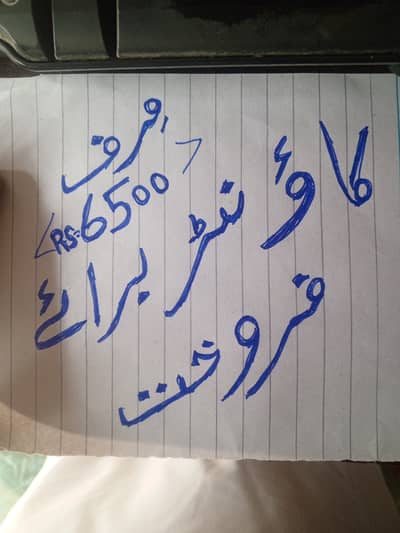 کاؤنٹر برائے
فروخت
صرف
<RS. 6500>